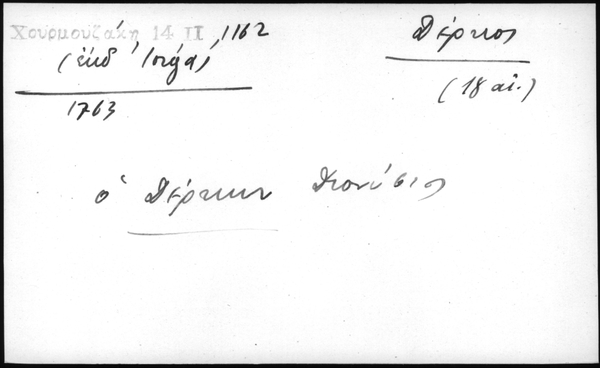 Χουρμουζάκη 14 II, 1162
(ἐκδ. Ἰόργα)
1763
Δέρκος
(18 αἰ.)
ὁ Δέρκων Διονύσιος